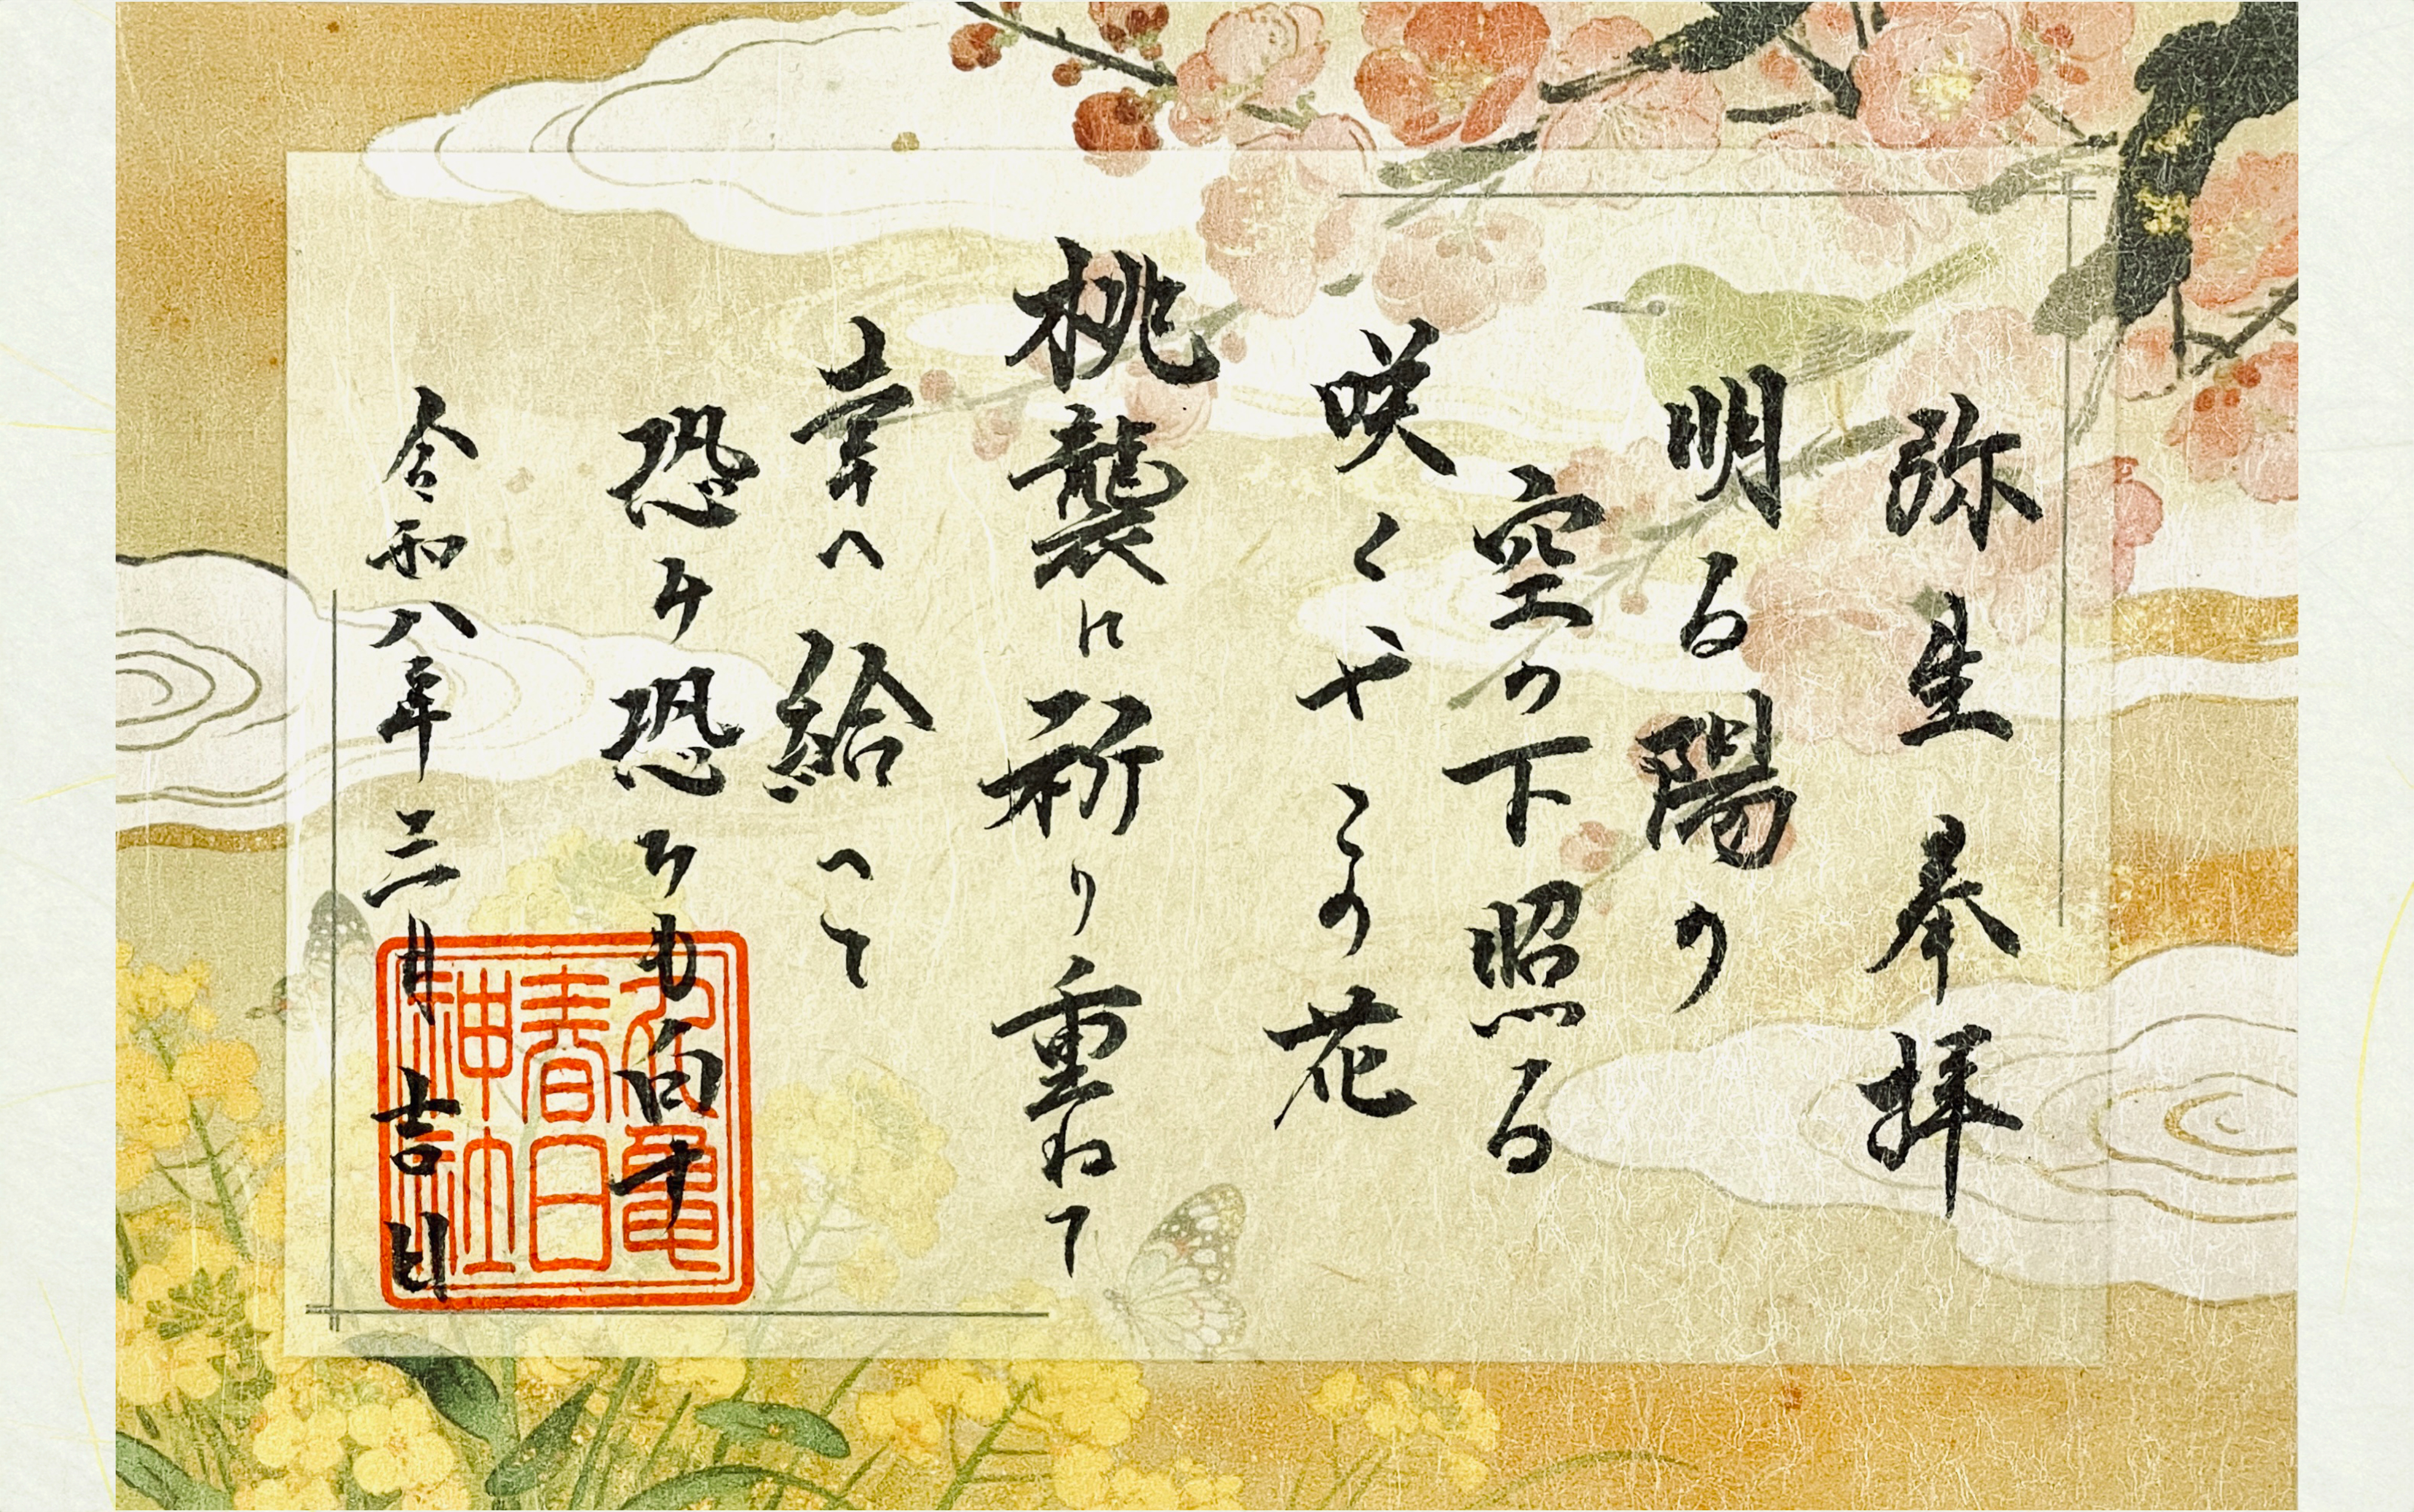 弥生奉拝
明る陽の
空の下照る
咲くやこの花
桃襲に祈り重ねて
幸へ給へて
恐み恐みも白す
令和八年三月吉日
丸亀
春日
神社